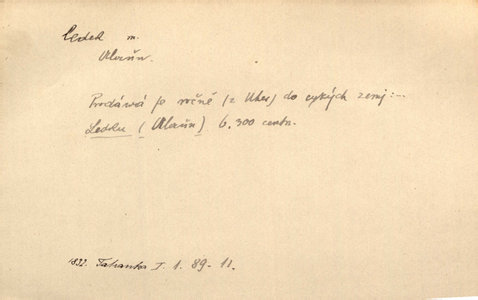 Ledek m.
Ulaiřn.
Prodává je ročně (z Uher) do cyzých zemj: ...
Ledku (Ulaiřn) 6.300 centn.
1832. Tatranka I. 1. 89 - 11.